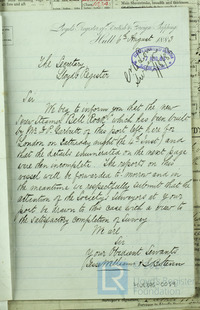 Lloyd's Register of British & Foreign Shipping
Hull 6th August 1883
The Secretary
Lloyd's Register
Sir
We beg to inform you that the new
Screw Steamer "Bell Rock" which has been built
by Mr
of this port left here for
London on Saturday night the 4th inst) and
that the details enumerated on the next page
were then incomplete. The report on this
vessel will be forwarded to-morrow and in
the meantime we respectfully submit that the
attention of the Society's Surveyors at your
port be drawn to this case with a view to
the satisfactory completion of survey
We are
Sir
Your Obedient Servants
Lloyd's Register
Foundation